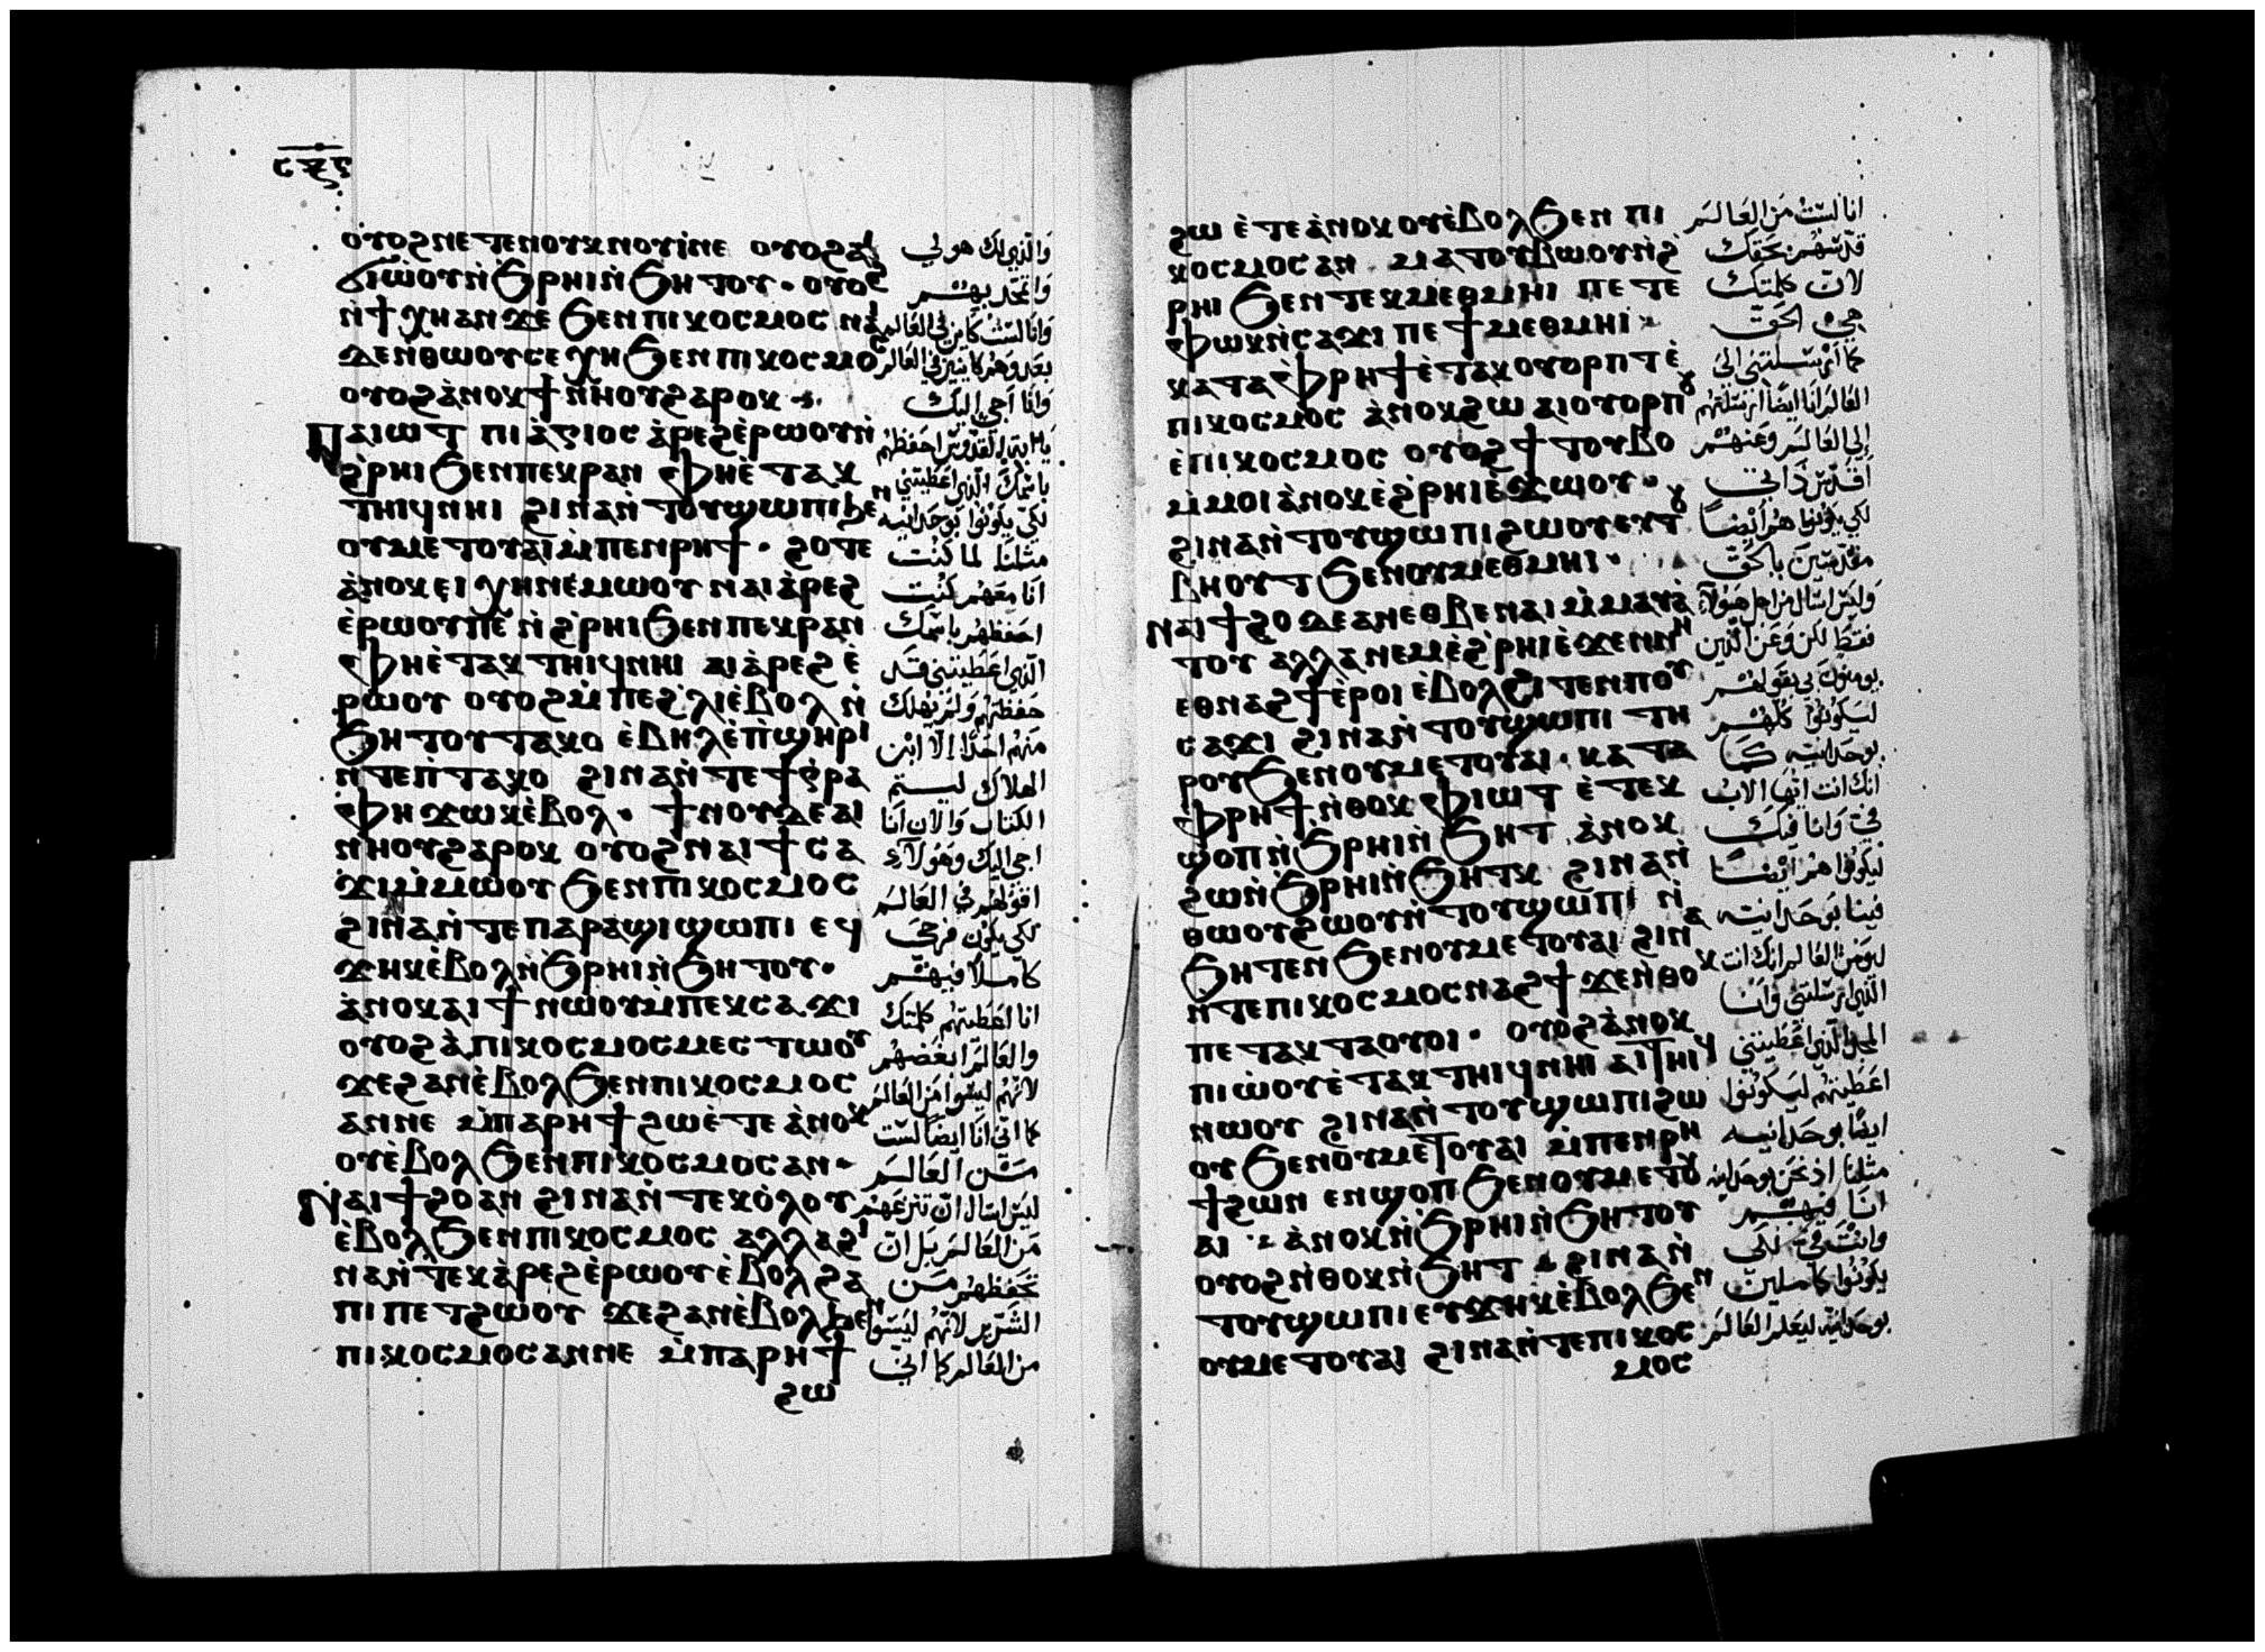 ⲟⲩⲟϩⲛⲉⲧⲉⲛⲟⲩⲕⲛⲟⲩⲓ̀ⲛⲉ ⲟⲩⲟϩⲁⲓ
ϭⲓⲱ̀ⲟⲩⲛ̀ϧⲣⲏⲓⲛ̀ϧⲏⲧⲟⲩ· ⲟⲩⲟϩ
ⲛ̀ϯⲭⲏⲁⲛϫⲉ ϧⲉⲛⲡⲓⲕⲟⲥⲙⲟⲥ
ϫⲉⲛ̀ⲑⲱⲟⲩⲥⲉⲭⲏ ϧⲉⲛⲡⲓⲕⲟⲥⲙⲟⲥ
ⲟⲩⲟϩⲁ̀ⲛⲟⲕϯⲛ̀ⲛⲏⲟⲩϩⲁⲣⲟⲕ
Ⲡⲁⲓⲱⲧ ⲡⲓⲁ̀ⲅⲓⲟⲥ ⲁ̀ⲣⲉϩⲉ̀ⲣⲱⲟⲩⲛ̀
ϩ̀ⲣⲏⲓ ϧⲉⲛⲡⲉⲕⲣⲁⲛ ⲫⲏⲉ̀ⲧⲁⲕ
ⲧⲏⲓϥⲛⲏⲓ ϩⲓⲛⲁⲛ̀ⲧⲟⲩϣⲱⲡⲓϧⲉⲛ
ⲟⲩⲙⲉⲧⲟⲩⲁⲓⲙ̀ⲡⲉⲛⲣⲏϯ· ϩⲟⲧⲉ
ⲁ̀ⲛⲟⲕⲉⲓ ⲭⲏⲛⲉ̀ⲙⲱⲟⲩ ⲛⲁⲓⲁ̀ⲣⲉϩ
ⲉ̀ⲣⲱⲟⲩⲡⲉ ⲛ̀ϩ̀ⲣⲏⲓϧⲉⲛⲡⲉⲕⲣⲁⲛ
ⲫⲏⲉ̀ⲧⲁⲕⲧⲏⲓϥⲛⲏⲓ ⲁⲓⲁ̀ⲣⲉϩ ⲉ̀
ⲣⲱⲟⲩ ⲟⲩⲟϩⲙ̀ⲡⲉϩ̀ⲗⲓⲉ̀ⲃⲟⲗ ⲛ̀
ϧⲏⲧⲟⲩⲧⲁⲕⲟ ⲉ̀ⲃⲏⲗⲉ̀ⲡ̀ϣⲏⲣⲓ
ⲛ̀ⲧⲉⲡ̀ⲧⲁⲕⲟ ϩⲓⲛⲁⲛ̀ⲧⲉϯⲅ̀ⲣⲁ
ⲫⲏ ϫⲱⲕⲉ̀ⲃⲟⲗ· ϯⲛⲟⲩϫⲉⲁⲓ
ⲛ̀ⲛⲏⲟⲩϩⲁⲣⲟⲕ ⲟⲩⲟϩⲛⲁⲓϯⲥⲁ
ϫⲓⲙ̀ⲙⲱⲟⲩ ϧⲉⲛⲡⲓⲕⲟⲥⲙⲟⲥ
ϩⲓⲛⲁⲛ̀ⲧⲉⲡⲁⲣⲁϣⲓϣⲱⲡⲓ ⲉϥ
ϫⲏⲕⲉ̀ⲃⲟⲗⲛ̀ϧⲣⲏⲓⲛ̀ϧⲏⲧⲟⲩ·
ⲁ̀ⲛⲟⲕⲁⲓϯⲛⲱⲟⲩⲙ̀ⲡⲉⲕⲥⲁϫⲓ
ⲟⲩⲟϩⲁ̀ⲡⲓⲕⲟⲥⲙⲟⲥⲙⲉⲥⲧⲱⲟⲩ
ϫⲉϩⲁⲛⲉ̀ⲃⲟⲗϧⲉⲛⲡⲓⲕⲟⲥⲙⲟⲥ
ⲁⲛⲛⲉ ⲙ̀ⲡⲁⲣⲏϯϩⲱⲉ̀ⲧⲉ ⲁ̀ⲛⲟⲕ
ⲟⲩⲉ̀ⲃⲟⲗϧⲉⲛⲡⲓⲕⲟⲥⲙⲟⲥⲁⲛ·
Ⲛⲁⲓϯϩⲟⲁⲛ ϩⲓⲛⲁⲛ̀ⲧⲉⲕⲟ̀ⲗⲟⲩ
ⲉ̀ⲃⲟⲗϧⲉⲛⲡⲓⲕⲟⲥⲙⲟⲥ ⲁⲗⲗⲁϩⲓ
ⲛⲁⲛ̀ⲧⲉⲕⲁ̀ⲣⲉϩⲉ̀ⲣⲱⲟⲩⲉ̀ⲃⲟⲗϩⲁ
ⲡⲓⲡⲉⲧϩⲱⲟⲩ ϫⲉϩⲁⲛⲉ̀ⲃⲟⲗϧⲉⲛ
ⲡⲓⲕⲟⲥⲙⲟⲥⲁⲛⲛⲉ ⲙ̀ⲡⲁⲣⲏϯ
ϩⲱ
والذي لك هو لي
واتمجد بهم
وانا لست كاين في العالم
بعد وهم كاينين في العالم
وانا اجي اليك
يا ابتاه القدوس احفظهم
باسمك الذي اعطيتني
لكي يكونوا بوحدانيه
مثلنا لما كنت
انا معهم كنت
احفظهم باسمك
الذي اعطيتني قد
حفظتهم ولم يهلك
منهم احدًا الا ابن
الهلاك ليتم
الكتاب والان انا
اجي اليك وهولاء
اقولهم في العالم
لكي يكون فرحي
كاملاً فيهم
انا اعطيتهم كلمتك
والعالم ابغضهم
لانهم ليسوا من العالم
كما اني انا ايضًا لست
من العالم
ليس اسال ان تنزعهم
من العالم بل ان
تحفظهم من
الشرير لانهم ليسوا
من العالم كما اني
ϩⲱ ⲉ̀ⲧⲉⲁ̀ⲛⲟⲕ ⲟⲩⲉ̀ⲃⲟⲗϧⲉⲛ ⲡⲓ
ⲕⲟⲥⲙⲟⲥⲁⲛ ⲙⲁⲧⲟⲩⲃⲱⲟⲩⲛ̀ϩ̀
ⲣⲏⲓ ϧⲉⲛⲧⲉⲕⲙⲉⲑⲙⲏⲓ ⲡⲉⲧⲉ
ⲫⲱⲕⲛ̀ⲥⲁϫⲓ ⲡⲉ ϯⲙⲉⲑⲙⲏⲓ
ⲕⲁⲧⲁⲫⲣⲏϯⲉ̀ⲧⲁⲕⲟⲩⲟⲣⲡⲧ ⲉ̀
ⲡⲓⲕⲟⲥⲙⲟⲥ ⲁ̀ⲛⲟⲕϩⲱ ⲁⲓⲟⲩⲟⲣⲡⲟⲩ
ⲉ̀ⲡⲓⲕⲟⲥⲙⲟⲥ ⲟⲩⲟϩϯⲧⲟⲩⲃⲟ
ⲙ̀ⲙⲟⲓⲁ̀ⲛⲟⲕⲉ̀ϩ̀ⲣⲏⲓⲉ̀ϫⲱⲟⲩ·
ϩⲓⲛⲁⲛ̀ⲧⲟⲩϣⲱⲡⲓϩⲱⲟⲩⲉⲩⲧⲟⲩ
ⲃⲏⲟⲩⲧ ϧⲉⲛⲟⲩⲙⲉⲑⲙⲏⲓ·
Ⲛⲁⲓϯϩⲟ ϫⲉⲁⲛⲉⲑⲃⲉⲛⲁⲓ ⲙ̀ⲙⲁⲩⲁ
ⲧⲟⲩ ⲁⲗⲗⲁⲛⲉⲙⲉ̀ϩ̀ⲣⲏⲓⲉ̀ϫⲉⲛⲛⲏ
ⲉⲑⲛⲁϩϯⲉ̀ⲣⲟⲓ ⲉ̀ⲃⲟⲗϩⲓⲧⲉⲛⲡⲟⲩ
ⲥⲁϫⲓ ϩⲓⲛⲁⲛ̀ⲧⲟⲩϣⲱⲡⲓ ⲧⲏ
ⲣⲟⲩϧⲉⲛⲟⲩⲙⲉⲧⲟⲩⲁⲓ· ⲕⲁⲧⲁ
ⲫⲣⲏϯⲛ̀ⲑⲟⲕ ⲫⲓⲱⲧ ⲉ̀ⲧⲉⲕ
ϣⲟⲡⲛ̀ϧⲣⲏⲓⲛ̀ϧⲏⲧ ⲁ̀ⲛⲟⲕ
ϩⲱⲛ̀ϧⲣⲏⲓⲛ̀ϧⲏⲧⲕ ϩⲓⲛⲁⲛ̀
ⲑⲱⲟⲩϩⲱⲟⲩⲛ̀ⲧⲟⲩϣⲱⲡⲓ ⲛ̀
ϧⲏⲧⲉⲛ ϧⲉⲛⲟⲩⲙⲉⲧⲟⲩⲁⲓ ϩⲓⲛⲁ
ⲛ̀ⲧⲉⲡⲓⲕⲟⲥⲙⲟⲥⲛⲁϩϯ ϫⲉⲛ̀ⲑⲟⲕ
ⲡⲉⲧⲁⲕⲧⲁⲟⲩⲟⲓ· ⲟⲩⲟϩⲁ̀ⲛⲟⲕ
ⲡⲓⲱ̀ⲟⲩⲉ̀ⲧⲁⲕⲧⲏⲓϥⲛⲏⲓ ⲁⲓⲧⲏⲓϥ
ⲛⲱⲟⲩ ϩⲓⲛⲁⲛ̀ⲧⲟⲩϣⲱⲡⲓϩⲱ
ⲟⲩ ϧⲉⲛⲟⲩⲙⲉⲧⲟⲩⲁⲓ ⲙ̀ⲡⲉⲛⲣⲏ
ϯϩⲱⲛ ⲉⲛϣⲟⲡ ϧⲉⲛⲟⲩⲙⲉⲧⲟⲩ
ⲁⲓ ⲁ̀ⲛⲟⲕⲛ̀ϧⲣⲏⲓⲛ̀ϧⲏⲧⲟⲩ
ⲟⲩⲟϩⲛ̀ⲑⲟⲕⲛ̀ϧⲏⲧ ϩⲓⲛⲁⲛ̀
ⲧⲟⲩϣⲱⲡⲓⲉⲩϫⲏⲕⲉ̀ⲃⲟⲗϧⲉⲛ
ⲟⲩⲙⲉⲧⲟⲩⲁⲓ ϩⲓⲛⲁⲛ̀ⲧⲉⲡⲓⲕⲟⲥ
ⲙⲟⲥ
انا لست من العالم
قدسهم بحقك
لان كلمتك
هي الحق
كما ارسلتني الى
العالم انا ايضًا ارسلتهم
الى العالم وعنهم
اقدس ذاتي
لكي يكونوا هم ايضًا
مقدسين بالحق
وليس اسال من اجل هولاء
فقط لكن وعن الذين
يومنون بي بقولهم
ليكونوا كلهم
بوحدانيه كما
انك انت ايها الاب
في وانا فيك
ليكونوا هم ايضًا
فينا بوحدانيه
ليومن العالم انك انت
الذي ارسلتني وانا
المجد الذي اعطيتني
اعطيتهم ليكونوا
ايضًا بوحدانيه
مثلنا اذ نحن بوحدانيه
انا فيهم
وانت في لكي
يكونوا كاملين
بوحدانيه ليعلم العالم